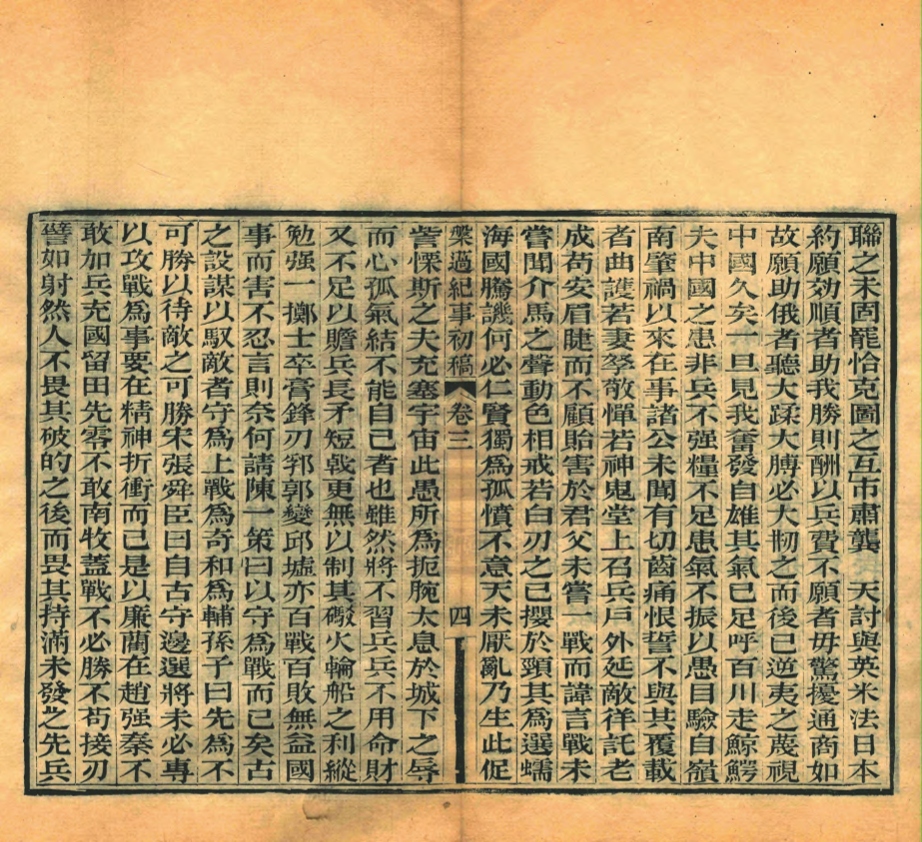 聯之未固寵恰克圖之互市肅龔　天討與英米法日本
約願効順者助我勝則酬以兵費不願者毋驚擾通商如
故願助俄者聽大蹂大膊必大刱之而後已逆夷之蔑視
中國久矣一旦見我奮發自雄其氣已足呼百川走鯨鰐
夫中國之患非兵不强糧不足患氣不振以愚目驗自嶺
南肇禍以來在事諸公未聞有切齒痛恨誓不與其覆載
者曲護若妻孥敬憚若神鬼堂上召兵戶外延敵祥託老
成苟安眉睫而不顧貽害於君父未嘗一戰而諱言戰未
嘗聞介馬之聲動色相戒若白刃之已攖於頸其為選蠕
海國騰譏何必仁賢獨為孤憤不意天未厭亂乃生此促
槃薖紀事初稿　卷三　四
訾慄斯之夫充塞宇宙此愚所為扼腕太息於城下之辱
而心孤氣結不能自已者也雖然將不習兵兵不用命財
又不足以贍兵長矛短戟更無以制其礮火輪船之利縱
勉强一擲士卒膏鋒刃郛郭變邱墟亦百戰百敗無益國
事而害不忍言則奈何請陳一策曰以守為戰而已矣古
之設謀以馭敵者守為上戰為奇和為輔孫子曰先為不
可勝以待敵之可勝宋張舜臣曰自古守邊選將未必專
以攻戰為事要在精神折衝而已是以廉藺在趙强秦不
敢加兵充國留田先零不敢南牧蓋戰不必勝不苟接刃
譬如射然人不畏其破的之後而畏其持滿未發之先兵